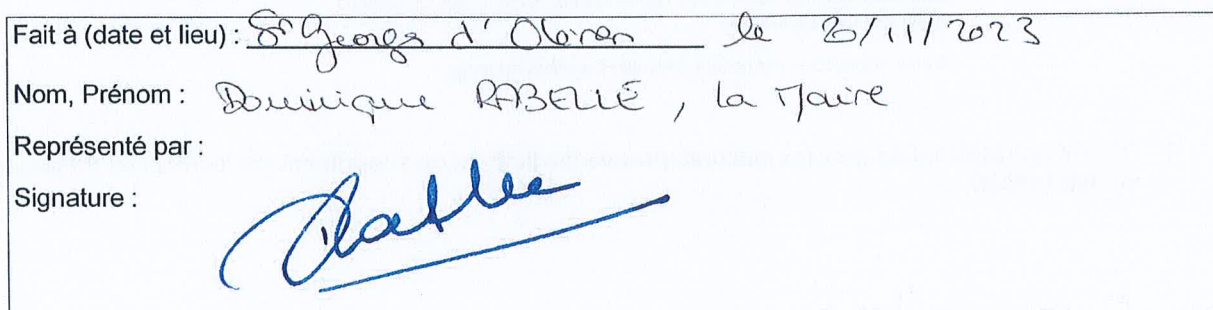 Fait à (date et lieu) : St Georges d'Oléron le 20/11/2023
Nom, Prénom : Dominique RABELLE, la Maire
Représenté par :
Signature :